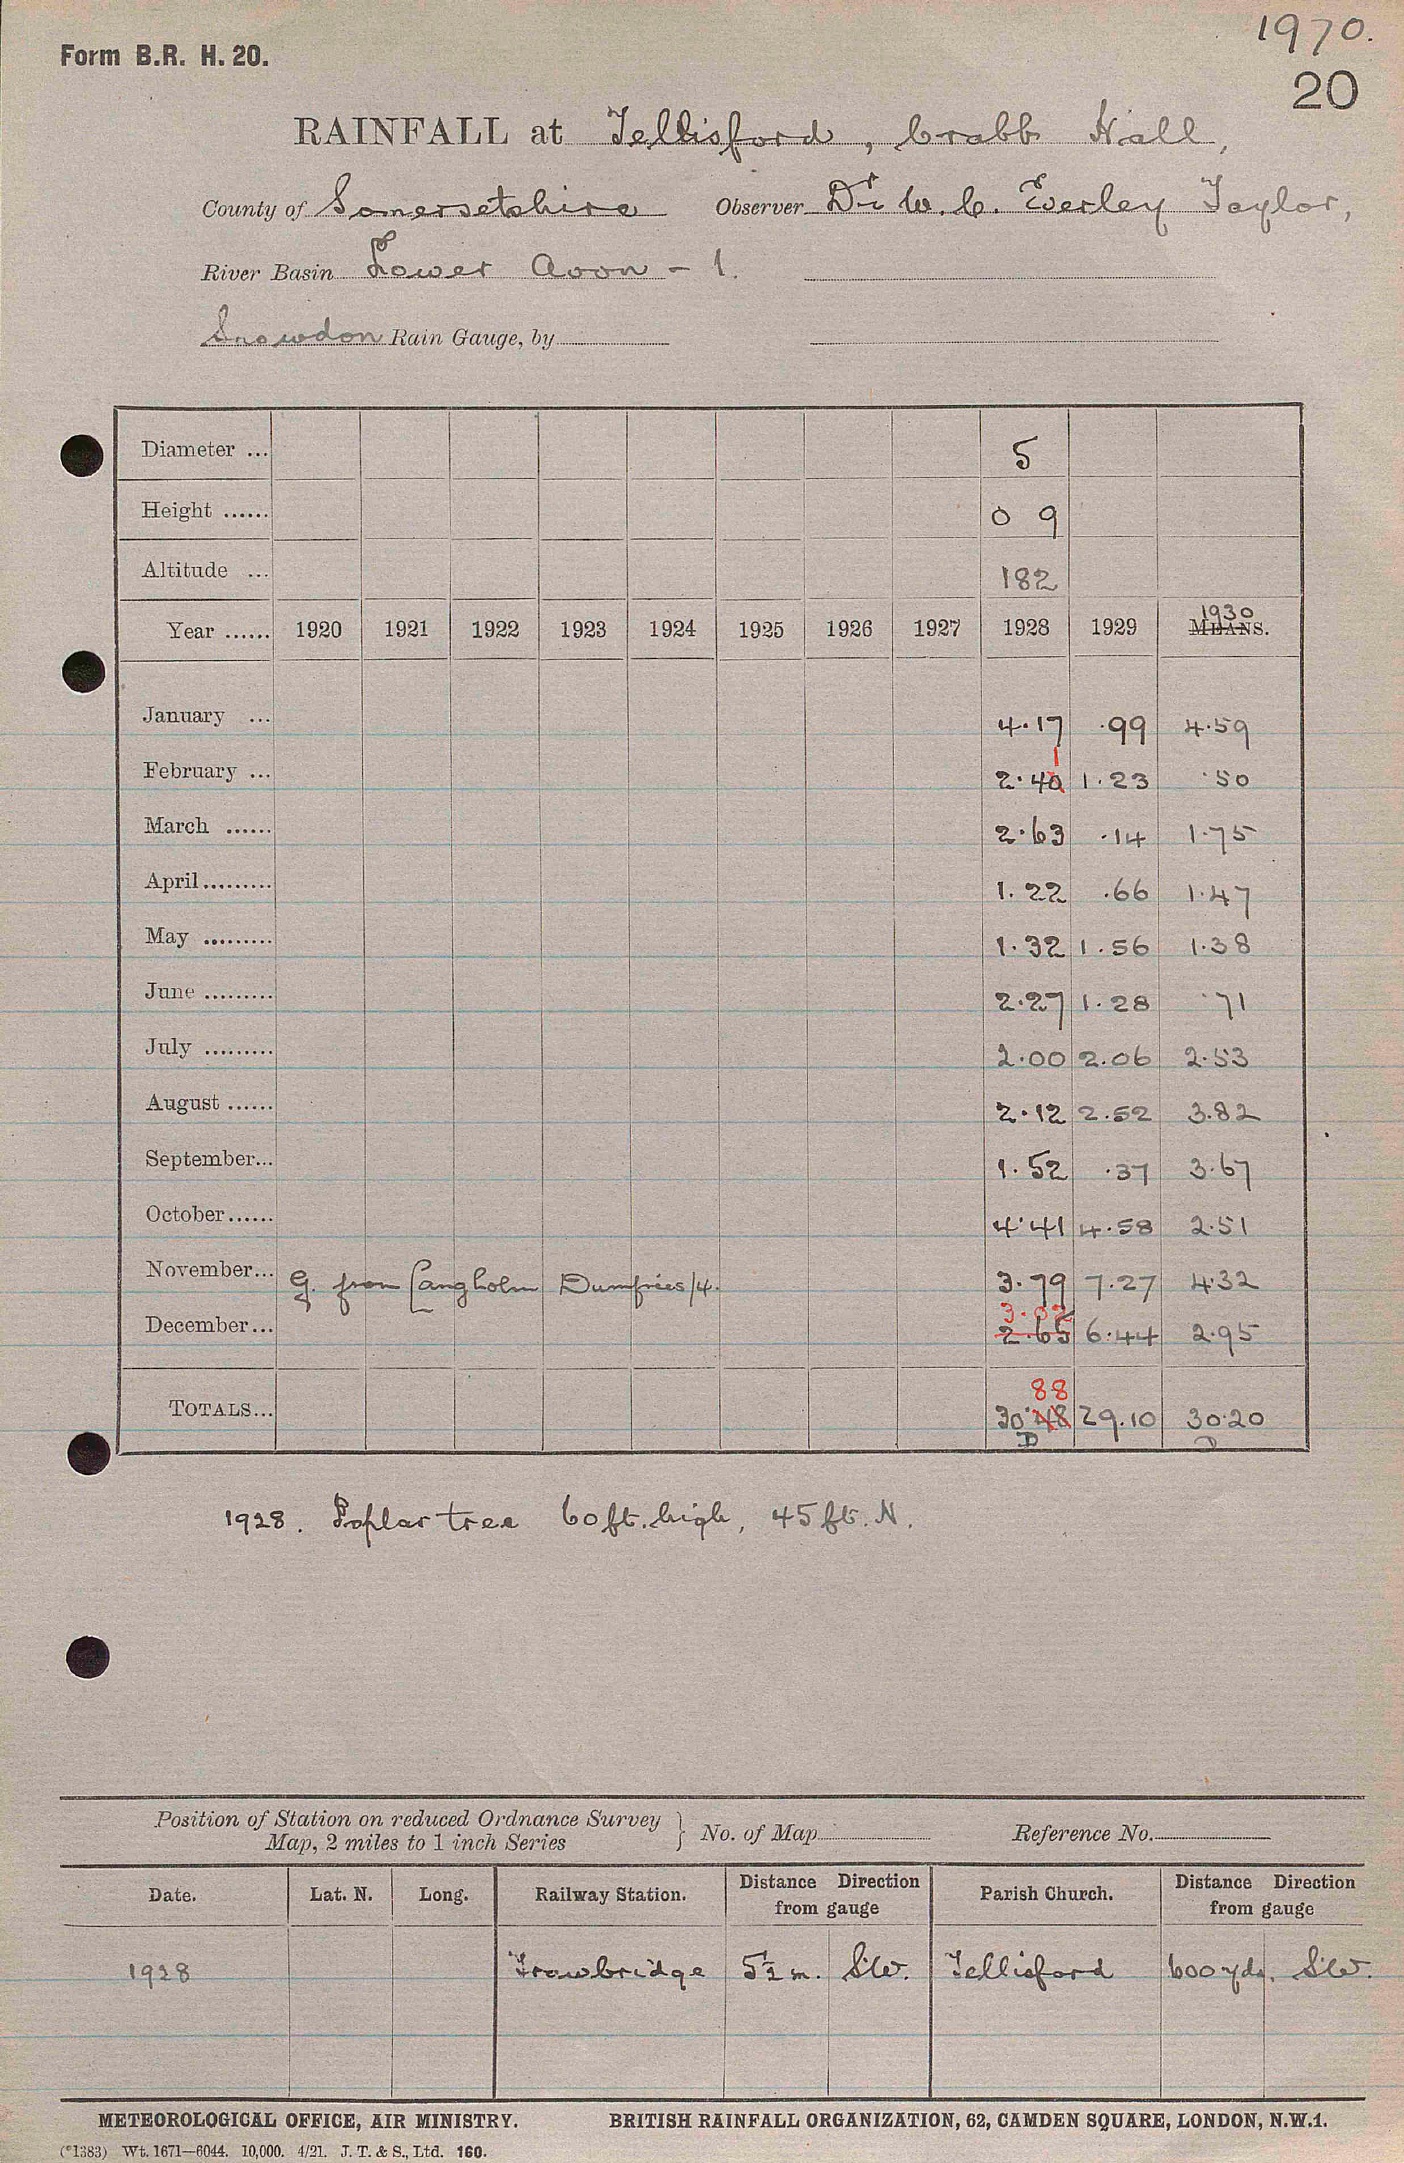 1970.
Form B.R. H. 20.
20
RAINFALL at Tellisford, Crabb Hall,
County of Somersetshire Observer Dr W. C. Everley Taylor,
River Basin Lower Avon - 1.
Snowdon Rain Gauge, by
Diameter ... 5
Height ...... 0 9
Altitude ... 182
Year ...... 1920 1921 1922 1923 1924 1925 1926 1927 1928 1929 1930 MEANS.
January ... 4.17 .99 4.59
February ... 2.40 1 1.23 .50
March ...... 2.63 .14 1.75
April ......... 1.22 .66 1.47
May ......... 1.32 1.56 1.38
June ......... 2.27 1.28 .71
July ......... 2.00 2.06 2.53
August ...... 2.12 2.52 3.82
September... 1.52 .37 3.67
October...... 4.41 4.58 2.51
November... G. from Langholm Dumfries/4. 3.79 7.27 4.32
December... 3.02 2.65 6.44 2.95
TOTALS... 88 30.48 29.10 30.20
D D
1928. Poplar tree 60 ft. high, 45 ft. N.
Position of Station on reduced Ordnance Survey
Map, 2 miles to 1 inch Series } No. of Map Reference No.
Date. Lat. N. Long. Railway Station. Distance Direction from gauge Parish Church. Distance Direction from gauge
1928 Trowbridge 5½ m. SW. Tellisford 600 yds. SW.
METEOROLOGICAL OFFICE, AIR MINISTRY. BRITISH RAINFALL ORGANIZATION, 62, CAMDEN SQUARE, LONDON, N.W.1.
(*1383) Wt. 1671—6044. 10,000. 4/21. J. T. & S., Ltd. 160.